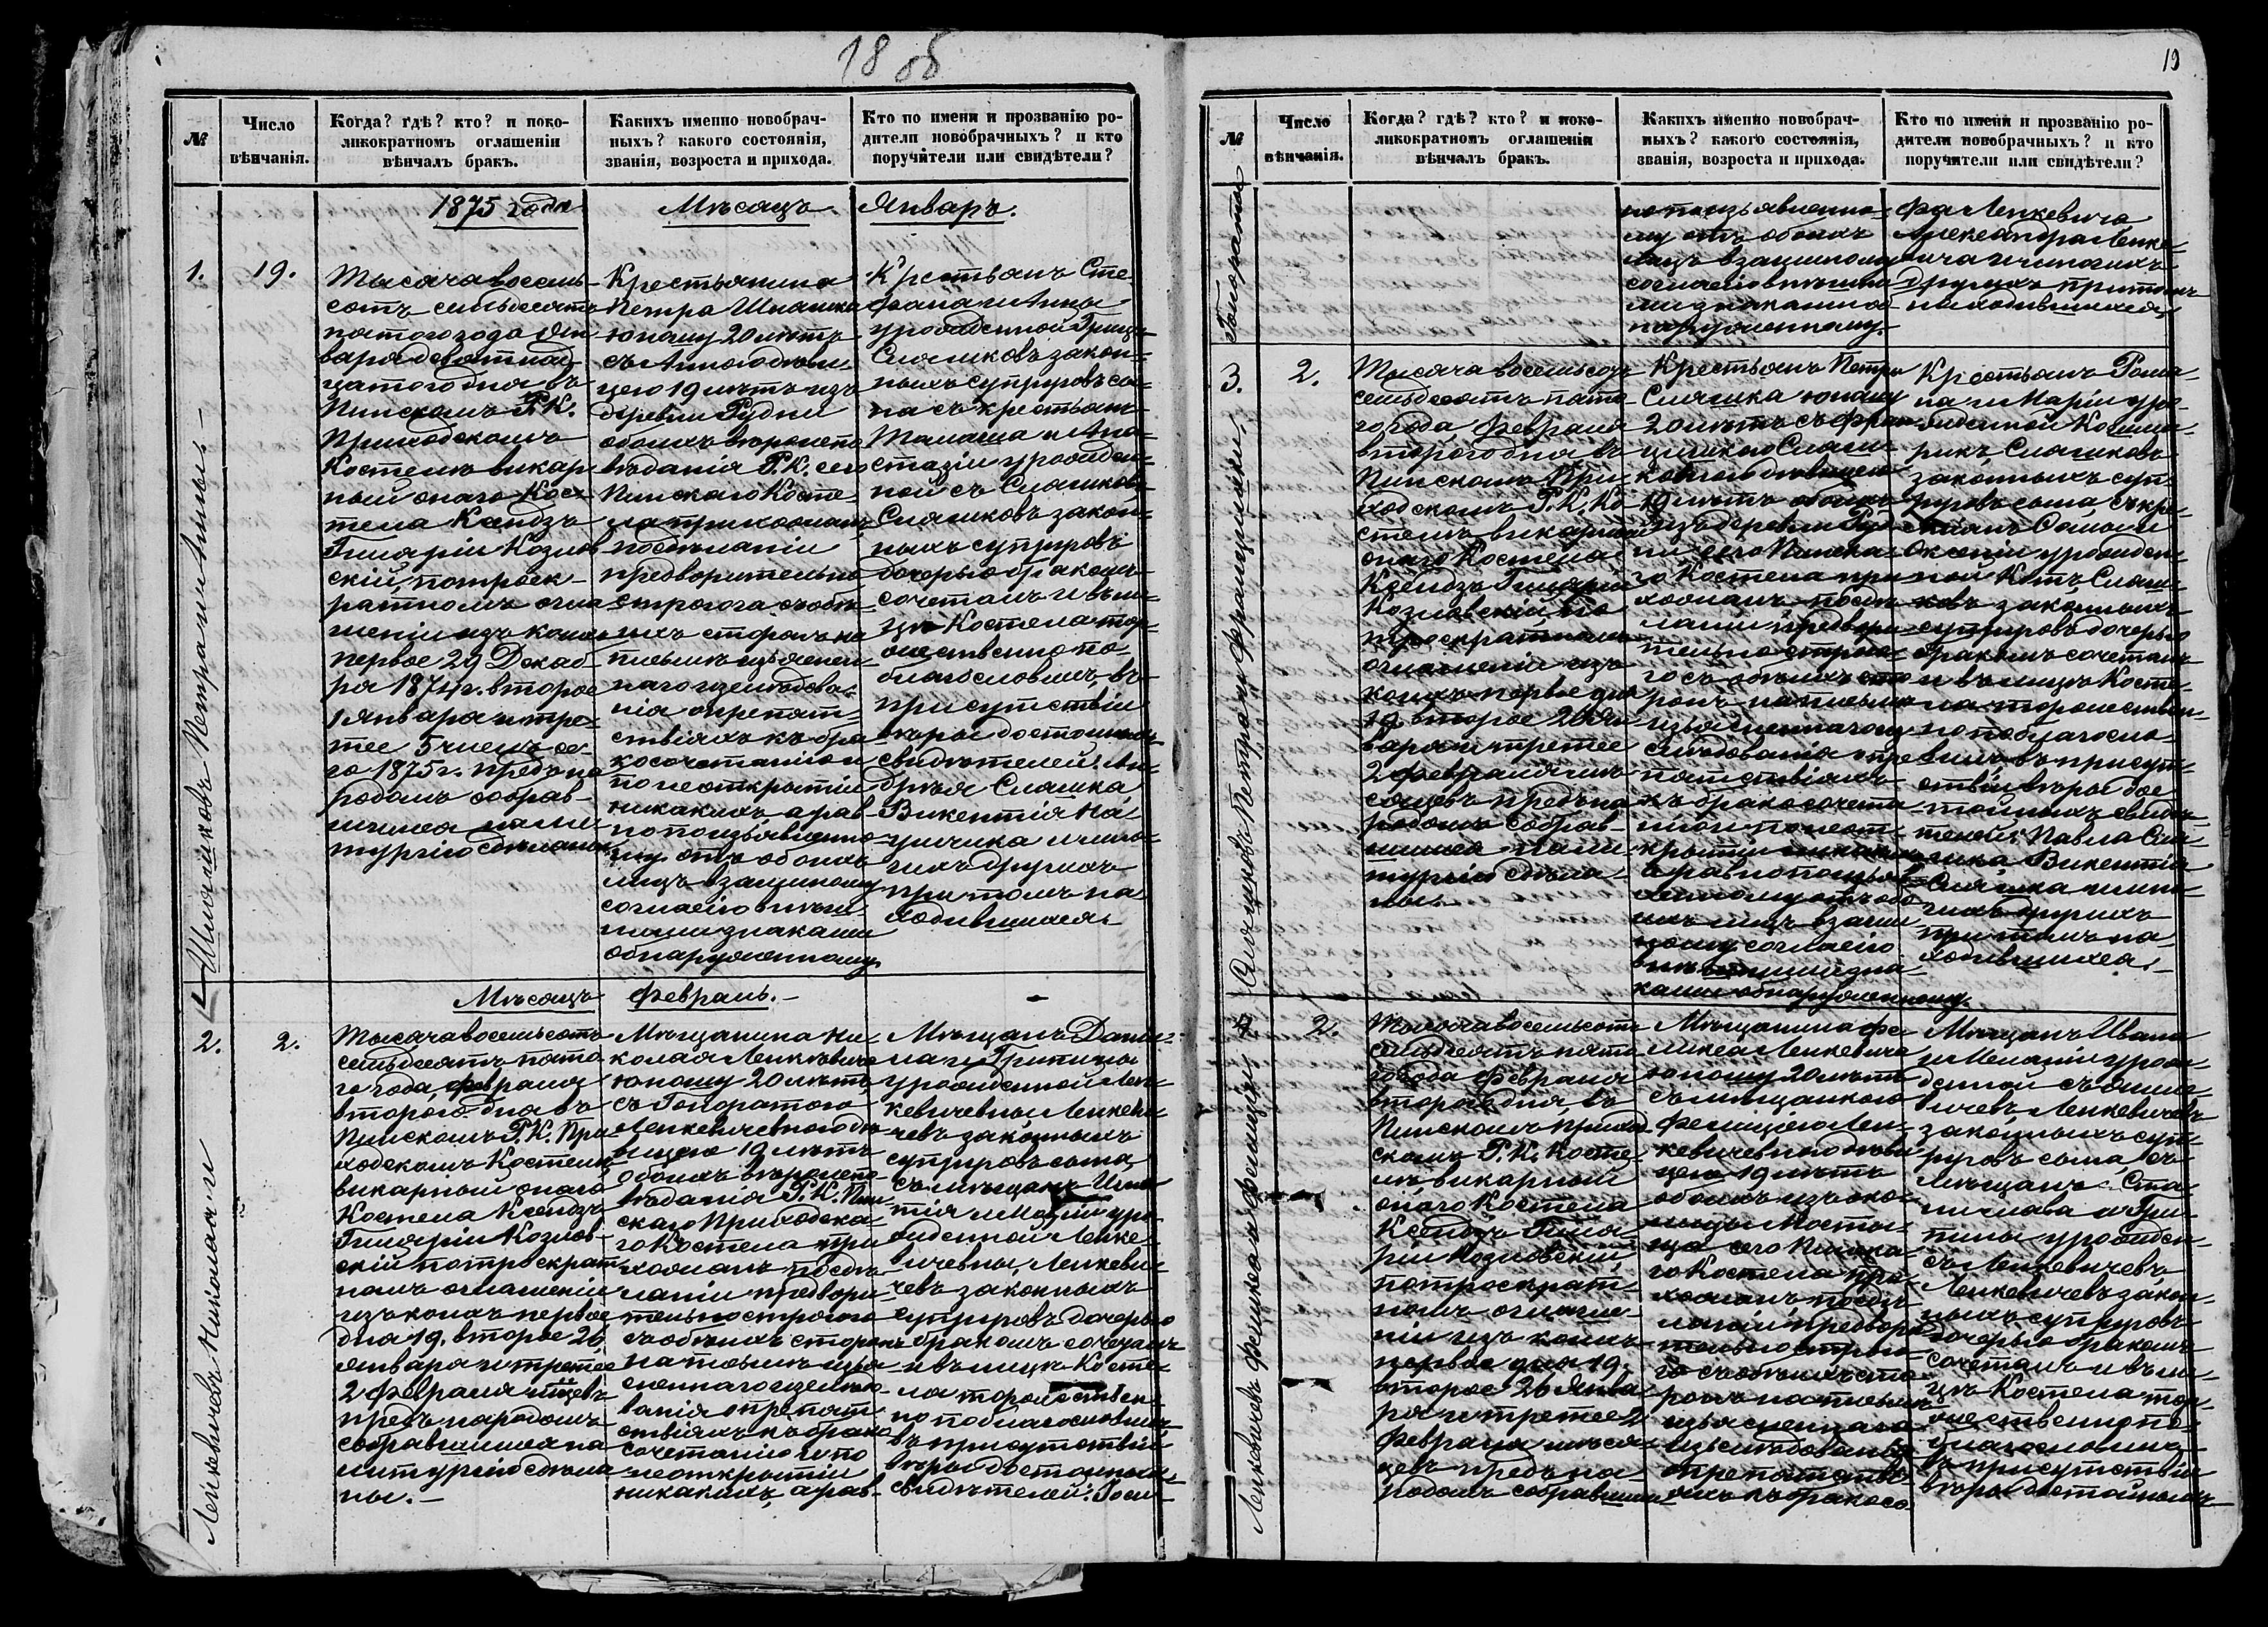 18 об
№
Число
вѣнчанія.
Когда? гдѣ? кто? и поко-
ликократномъ оглашеніи
вѣнчалъ бракъ.
Какихъ именно новобрач-
ныхъ? какого состоянія,
званія, возроста и прихода.
Кто по имени и прозванію ро-
дители новобрачныхъ? и кто
поручители или свидѣтели?
1875 года Мѣсяцъ Январь.
Петра и Анны.
1.
19.
Тысяча восемь-
сотъ семьдесятъ
пятого года Ян
варя девятнад-
цатого дня въ
Пинскомъ Р.К.
Приходскомъ
Костелѣ викар
ный онаго Кос-
тела Ксендзъ
Гиларій Козлов
скій, потроек-
ратномъ огла
шеніи изъ коихъ
первое 29 Декаб-
ря 1874 г. второе
1 Января и тре-
тее 5 чиселъ се-
го 1875 г. предъ на
родомъ собрав-
шимся на ли-
тургію сдѣланы
Крестьянина
Петра
юношу 20 лѣтъ
съ Анною дѣви
цею 19 лѣтъ изъ
деревни Рудни
обоихъ вѣроиспо
вѣданія Р.К. сего
Пинскаго Косте
ла прихожанъ
по сдѣланіи
предворительно
строгога съ обѣ-
ихъ сторонъ на
письмѣ изъяснен
наго изслѣдова-
нія опрепят-
ствіяхъ къ бра
косочетанію и
по неоткрытіи
никакихъ а рав-
но по изъявленно
му отъ обоихъ
лицъ взаимному
согласію внѣш-
ними знаками
обнаруженному
Крестьянъ Сте-
фана и Анны
урожденной
законь-
ныхъ супруговъ сы-
на съ крестьянъ
Томаша и Ана-
стазіи урожден-
ной съ
закон-
ныхъ супруговъ
дочерью бракомъ
сочеталъ и въ ли-
цѣ Костела тор-
жественно по-
благословилъ въ
присутствіи
вѣры достойныхъ
свидѣтелей: Ан-
дрея
Викентія
и мно-
гихъ другихъ
при томъ на
ходившихся.
Мѣсяцъ Февраль.
Ленкевичовъ Николая и
2.
2.
Тысяча восемьсотъ
семьдесятъ пято
го года, февраля
второго дня въ
Пинскомъ Р.К. При
ходскомъ Костелѣ
викарный онаго
Костела Ксендзъ
Гиларій Козлов-
скій по троекрат
номъ оглашеніи
изъ коихъ первое
дня 19, второе 26
января и третее
2 февраля м-цевъ
предъ народомъ
собравшимся на
литургію сдѣла
ны.
Мѣщанина Ни
колая Ленкевича
юношу 20 лѣтъ
съ Гоноратою
Ленкевичевною дѣ
вицею 19 лѣтъ
обоихъ вѣроиспо
вѣданія Р.К. Пин
скаго Приходска
го Костела при
хожанъ по сдѣ
ланіи предвори
тельно строгого
съ обѣихъ сторонъ
на письмѣ изъя
сненнаго изслѣдо
ванія опрепят
ствіяхъ къ брако
сочетанію и по
неоткрытіи
никакихъ, а рав-
Мѣщанъ
урожденной Лен
кевичевны Ленкеви
чевъ законныхъ
супруговъ сына,
съ мѣщанъ
тія и Маріи уро
жденной Ленке
вичевны, Ленкеви
чевъ законныхъ
супруговъ дочерью
бракомъ сочеталъ
и въ лицѣ Косте
ла торжествен-
но поблагословилъ
въ присутствіи
вѣры достойныхъ
свидѣтелей:
19
№
Число
вѣнчанія.
Когда? гдѣ? кто? и поко-
ликократномъ оглашеніи
вѣнчалъ бракъ.
Какихъ именно новобрач-
ныхъ? какого состоянія,
званія, возроста и прихода.
Кто по имени и прозванію ро-
дители новобрачныхъ? и кто
поручители или свидѣтели?
Гонораты
но по изъявленно
му отъ обоихъ
лицъ взаимному
согласію внѣшни
ми знаками об
наруженному.
фа Ленкевича
Александра Ленке
вича и многихъ
другихъ притомъ
находившихся.
Петра и Францишки.
3.
2.
Тысяча восемьсотъ
семьдесятъ пято
го года, февраля
второго дня въ
Пинскомъ При
ходскомъ Р.К. Ко
стелѣ викарный
онаго Костела
Ксендзъ Гиларій
Козловскій, по
троекратномъ
оглашеніи изъ
коихъ первое дня
19, второе 26 Ян
варя и третее
2 февраля мѣ
сяцевъ предъ на
родомъ собрав-
шимся на ли
тургію сдѣла
ны.
Крестьянъ Петра
юношу
20 лѣтъ съ Фран
цишкою
дѣвицею
19 лѣтъ обоихъ
изъ деревни Руд
ни сего Пинска
го Костела при
хожанъ, по сдѣ
ланіи предвори
тельно строго
го съ обѣихъ сто
ронъ на письмѣ
изъясненнаго из
слѣдованія опре
пятствіяхъ
къ бракосочета
нію и по неот
крытіи никакихъ
а равно по изъяв
ленному отъ обо
ихъ лицъ взаим
ному согласію
внѣшними зна
ками обнаруженному.
Крестьянъ Рома
на и Маріи уро-
жденной
законныхъ суп-
руговъ сына, съ кре
стьянъ
Оксеніи урожден
ной
законныхъ
супруговъ дочерью
бракомъ сочеталъ
и въ лицѣ Косте
ла торжествен-
но поблагосло
вилъ въ присут
ствіи вѣры дос
тойныхъ свидѣ
телей: Павла
Викентія
и мно
гихъ другихъ
при томъ на
ходившихся.
Ленкевичовъ Феликса и Фелиціи
2.
Тысяча восемьсотъ
семьдесятъ пято
го года февраля
второго дня, въ
Пинскомъ приход
скомъ Р.К. Косте
лѣ викарный
онаго Костела
Ксендзъ Гила
рій Козловскій,
по троекрат
номъ оглаше
ніи изъ коихъ
первое дня 19,
второе 26 Янва
ря и третее 2
февраля мѣся
цевъ предъ на-
родомъ собравшим
Мѣщанина Фе
ликса Ленкевича
юношу 20 лѣтъ
съ мѣщанкою
Фелиціею Лен
кевичевною дѣви
цею 19 лѣтъ
обоихъ изъ око
лицы
сего Пинска
го Костела при
хожанъ, по сдѣ
ланіи предвори
тельно строго
го съ обѣихъ сто
ронъ на письмѣ
изъясненнаго
изслѣдованія
опрепятстві
яхъ къ бракосо
Мѣщанъ Ивана
и Меланіи урож
денной
Ленкевичевъ
законныхъ суп
руговъ сына, съ
Мѣщанъ Ста
нислава и
урожден
съ Ленкевичевъ
Ленкевичевъ закон
ныхъ супруговъ
дочерью бракомъ
сочеталъ и въ ли
цѣ Костела тор
жественно по
благословилъ
въ присутствіи
вѣры достойныхъ